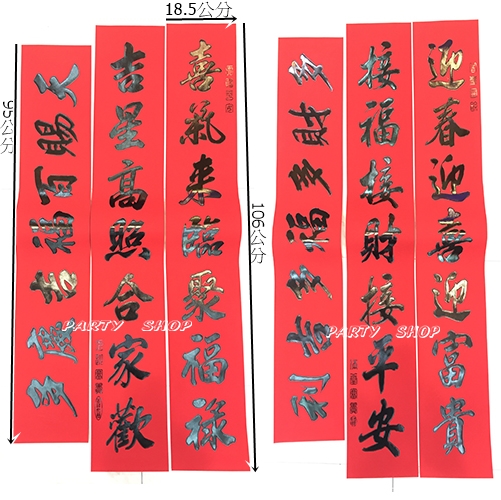 18.5公分
95公分
106公分
喜氣来臨聚福禄
吉星高照合家歡
天賜百福吉慶多
迎春迎喜迎富貴
接福接財接平安
多招多福多吉利
PARTY SHOP
PARTY SHOP